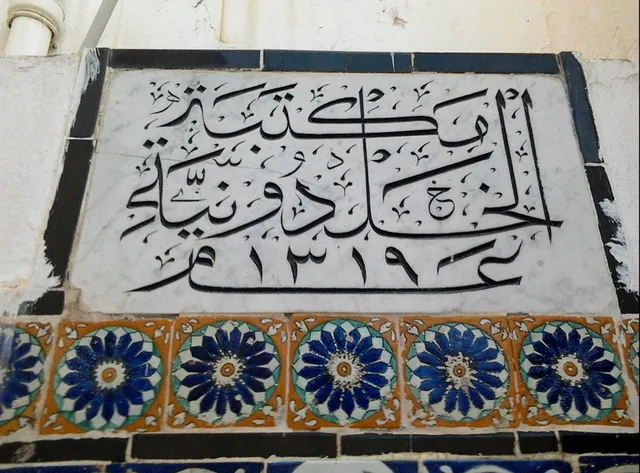 مكتبة
الخلدونية
عام ١٣١٩